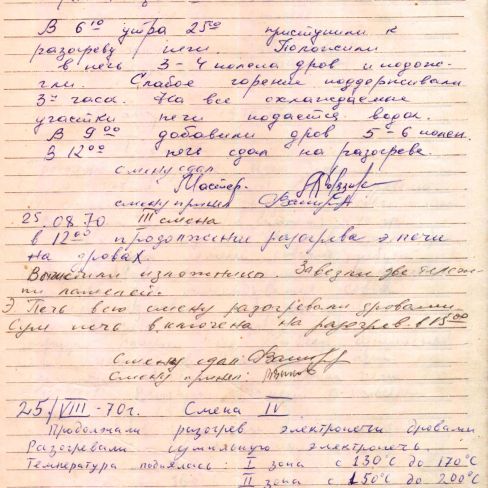 В 6 10 утра 25 00 приступили к
разогреву печи. Положили
в печь 3-4 полена дров и подож-
гли. Слабое горение поддерживали
3 часа. На все охлаждаемые
участки печи подается вода.
В 9 00 добавили дров 5-6 полен.
В 12 00 печь сдал на разогреве.
смену сдал
Мастер.
смену принял
25.08.70 III смена
в 12 00 продолжении разогрева э.печи
на дровах.
изложницы. Завезли две
Э Печь всю смену разогревали дровами.
Суш печь включена на разогрев в 15 00
Смену сдал:
Смену принял:
25/VIII-70г. Смена IV
Продолжали разогрев электропечи дровами
Разогревали сушильную электропечь.
Температура поднялась: I зона с 130°С до 170°С
II зона с 150°С до 200°С